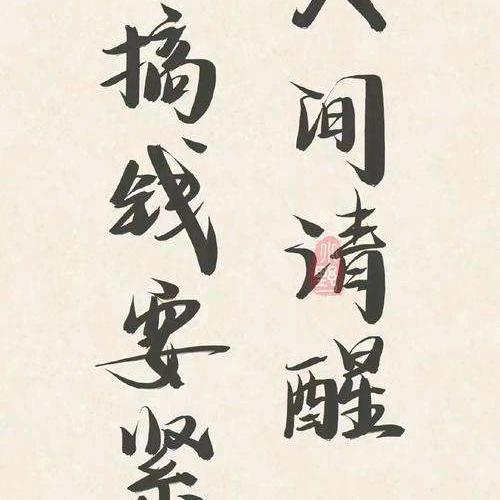 人间请醒
搞钱要紧